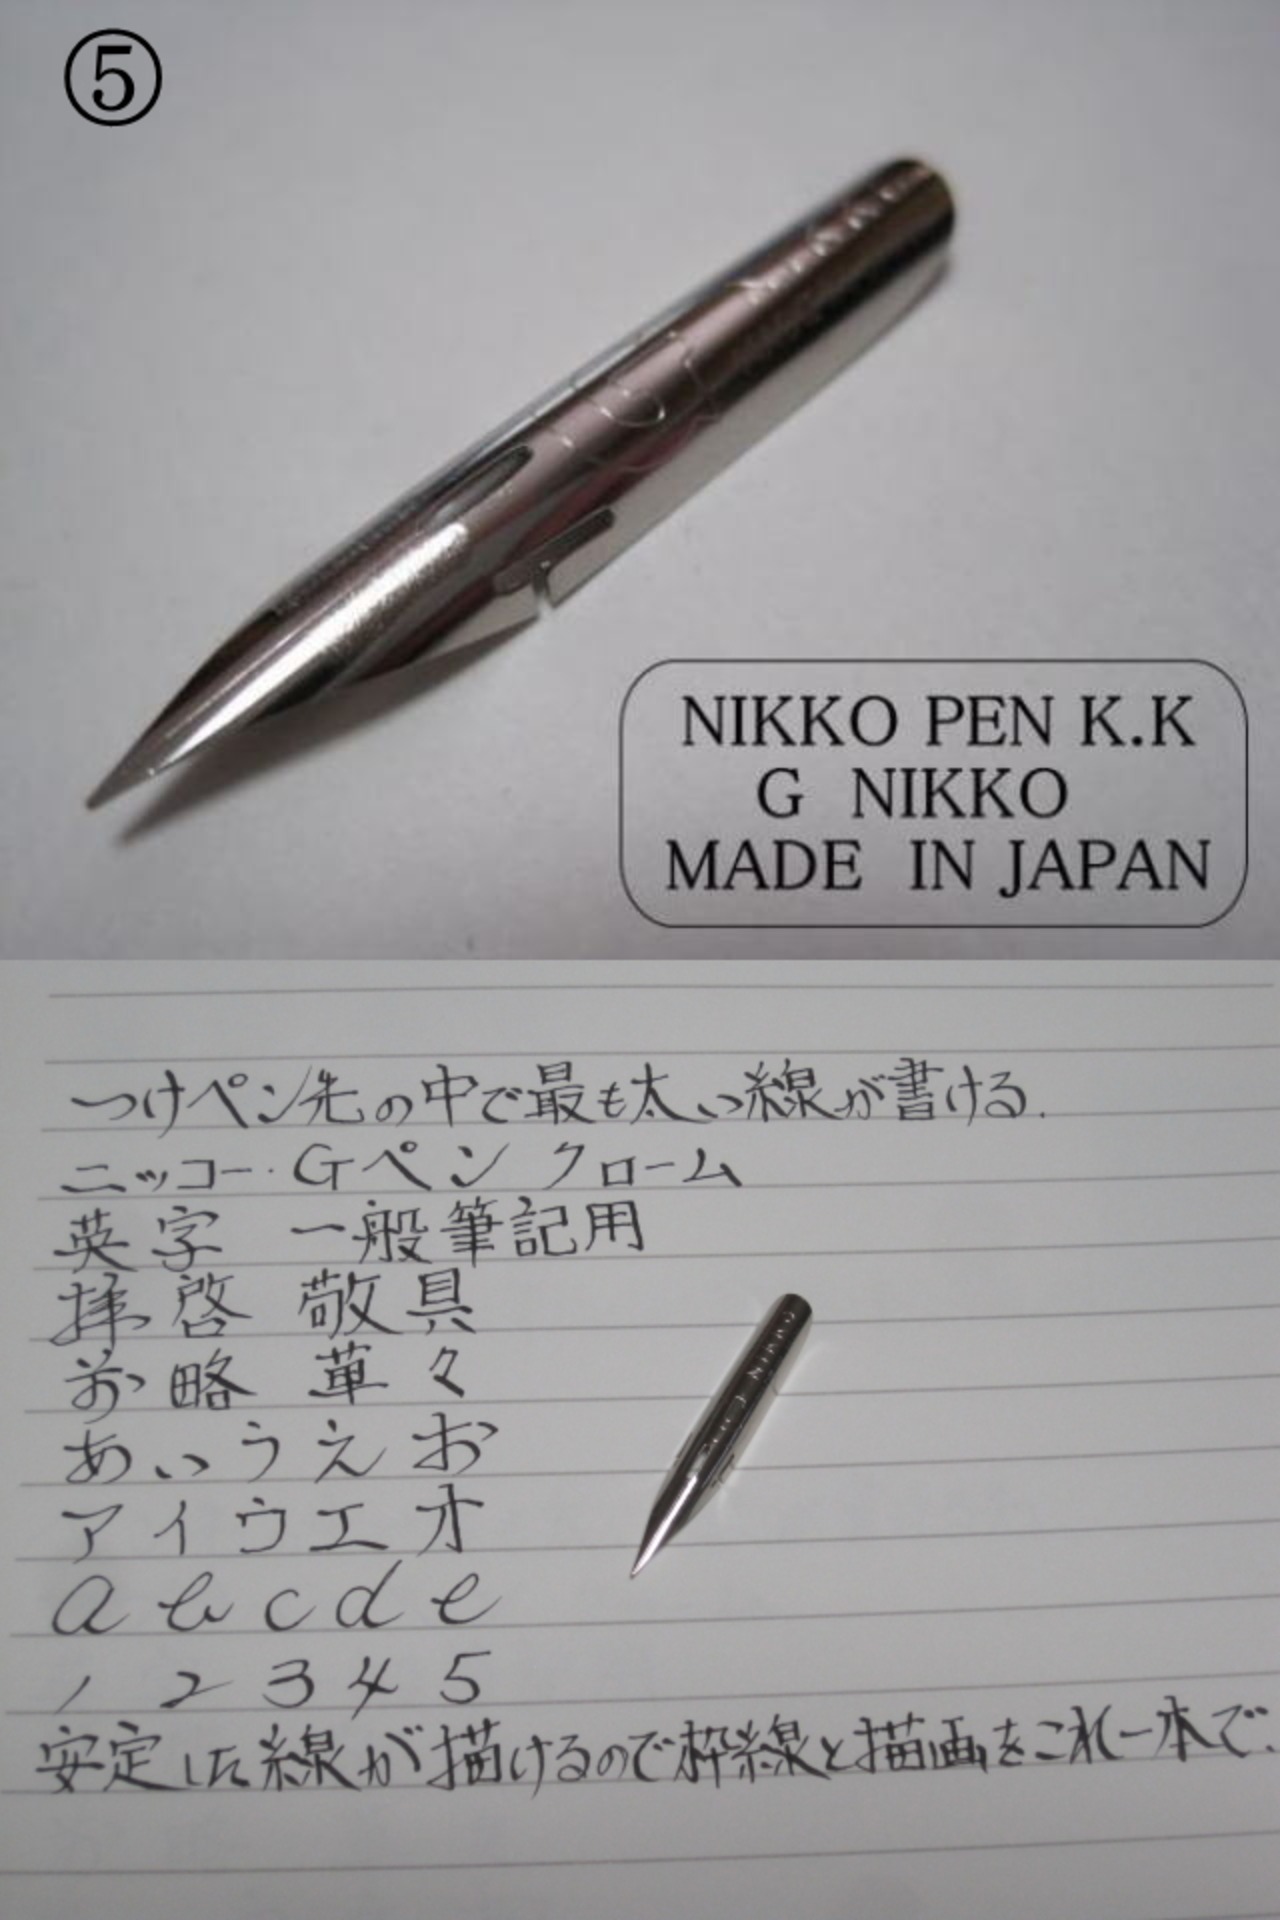 ⑤
NIKKO PEN K.K
G NIKKO
MADE IN JAPAN
つけペン先の中で最も太い線が書ける.
ニッコー・Gペン クローム
英字 一般筆記用
拝啓 敬具
前略 草々
あいうえお
アイウエオ
a b c d e
1 2 3 4 5
安定した線が描けるので枠線と描画をこれ一本で.